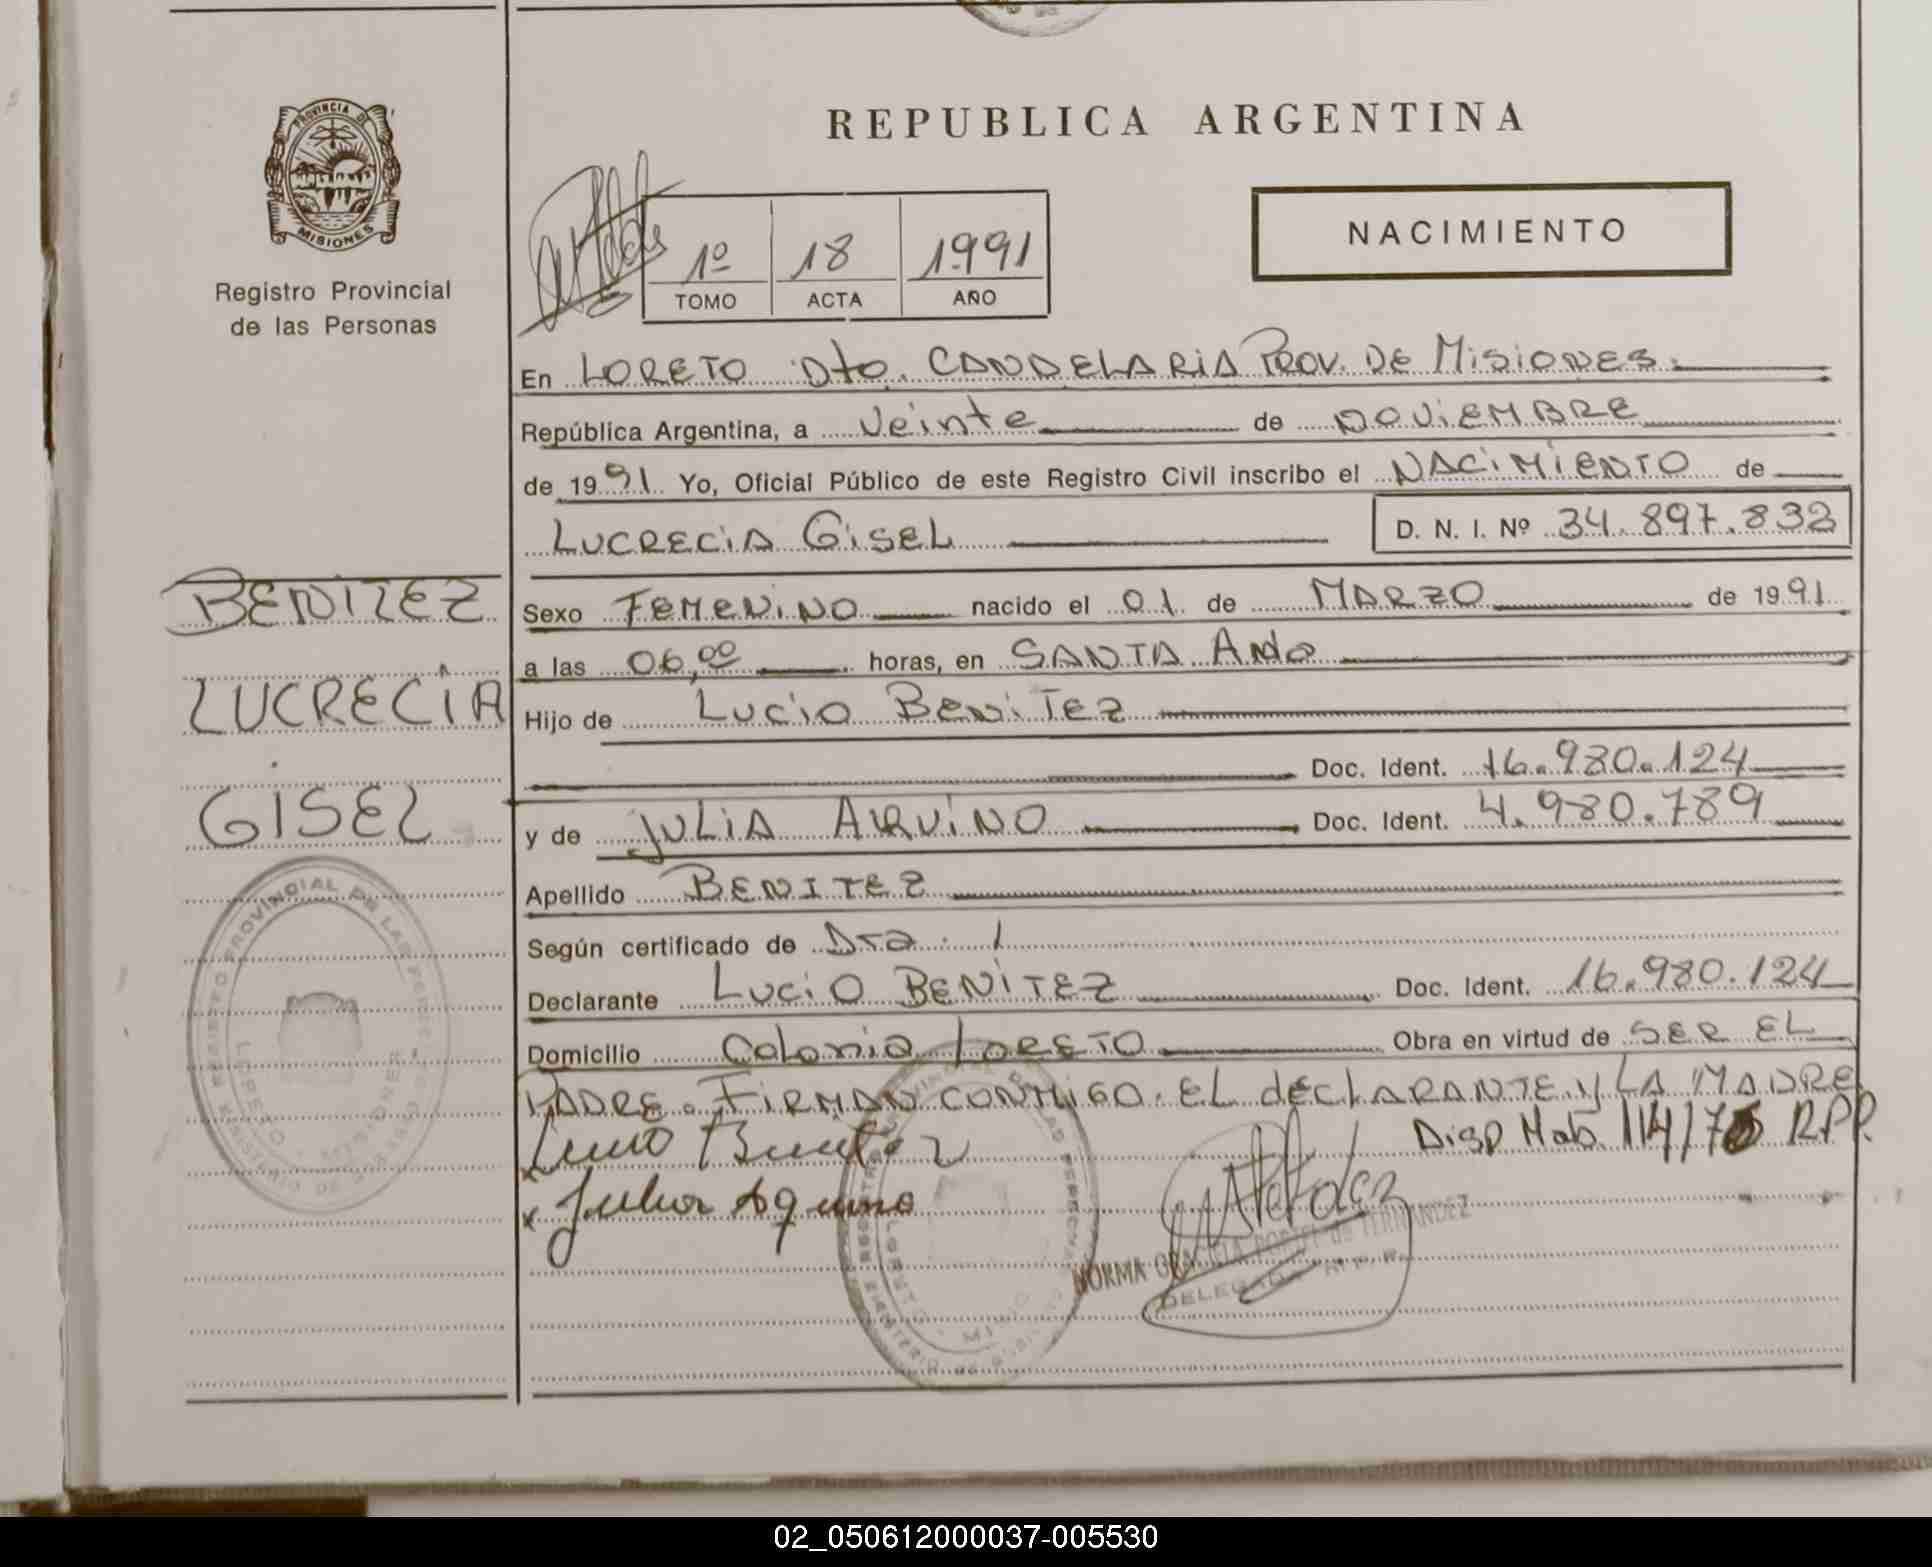 REPUBLICA ARGENTINA
PROVINCIA DE
MISIONES
Registro Provincial
de las Personas
1º 18 1991
TOMO ACTA AÑO
NACIMIENTO
En LORETO Dto. CANDELARIA PROV. DE MISIONES.
República Argentina, a Veinte de NOVIEMBRE
de 1991 Yo, Oficial Público de este Registro Civil inscribo el NACIMIENTO de
LUCRECIA GISEL D. N. I. Nº 34.897.832
BENITEZ
LUCRECIA
GISEL
Sexo FEMENINO nacido el 01 de MARZO de 1991
a las 06,00 horas, en SANTA ANA
Hijo de LUCIO BENITEZ
Doc. Ident. 16.980.124
y de JULIA AQUINO Doc. Ident. 4.980.789
Apellido BENITEZ
Según certificado de Dra. /
Declarante LUCIO BENITEZ Doc. Ident. 16.980.124
Domicilio Colonia LORETO Obra en virtud de SER EL
PADRE. FIRMAN CONMIGO EL DECLARANTE y LA MADRE
Disp Nac. 114/75 RPP.
x Lucio Benitez
x Julia Aquino
REGISTRO PROVINCIAL DE LAS PERSONAS
LORETO - MISIONES
MINISTERIO DE GOBIERNO
NORMA GRACIELA de FERNANDEZ
DELEGADA R.P.P.
02_050612000037-005530